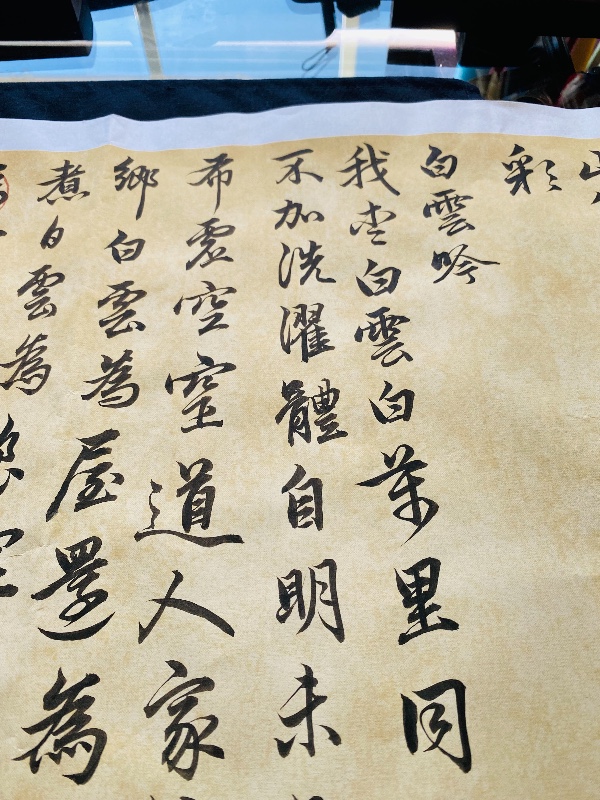 彩
白雲吟
我白雲白萬里同
不加洗濯體自明未
希虛空道人家
鄉白雲為屋還為
煮白雲為